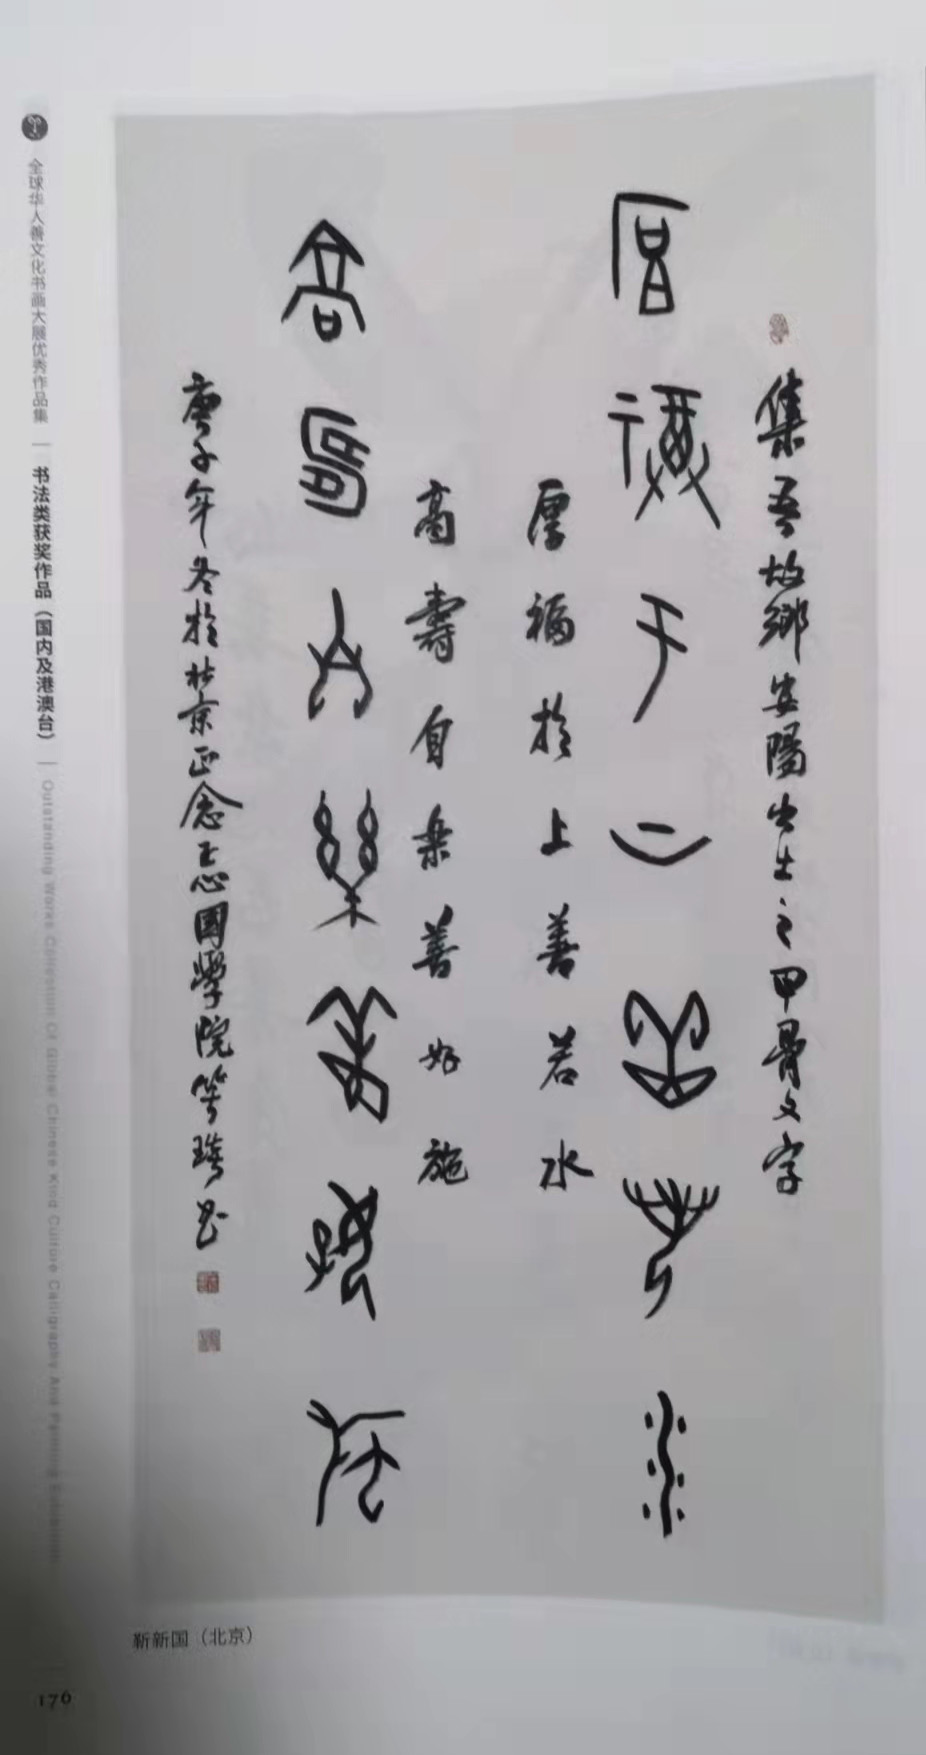 集吾故鄉安陽出土之甲骨文字
厚福于上善若水
厚福於上善若水
高壽自樂善好施
高壽自樂善好施
庚子年冬於北京正念正志國學院
全球华人善文化书画大展优秀作品集｜书法类获奖作品（国内及港澳台）｜Outstanding Works Collection Of Global Chinese Kind Culture Calligraphy And Painting Exhibition
靳新国（北京）
176